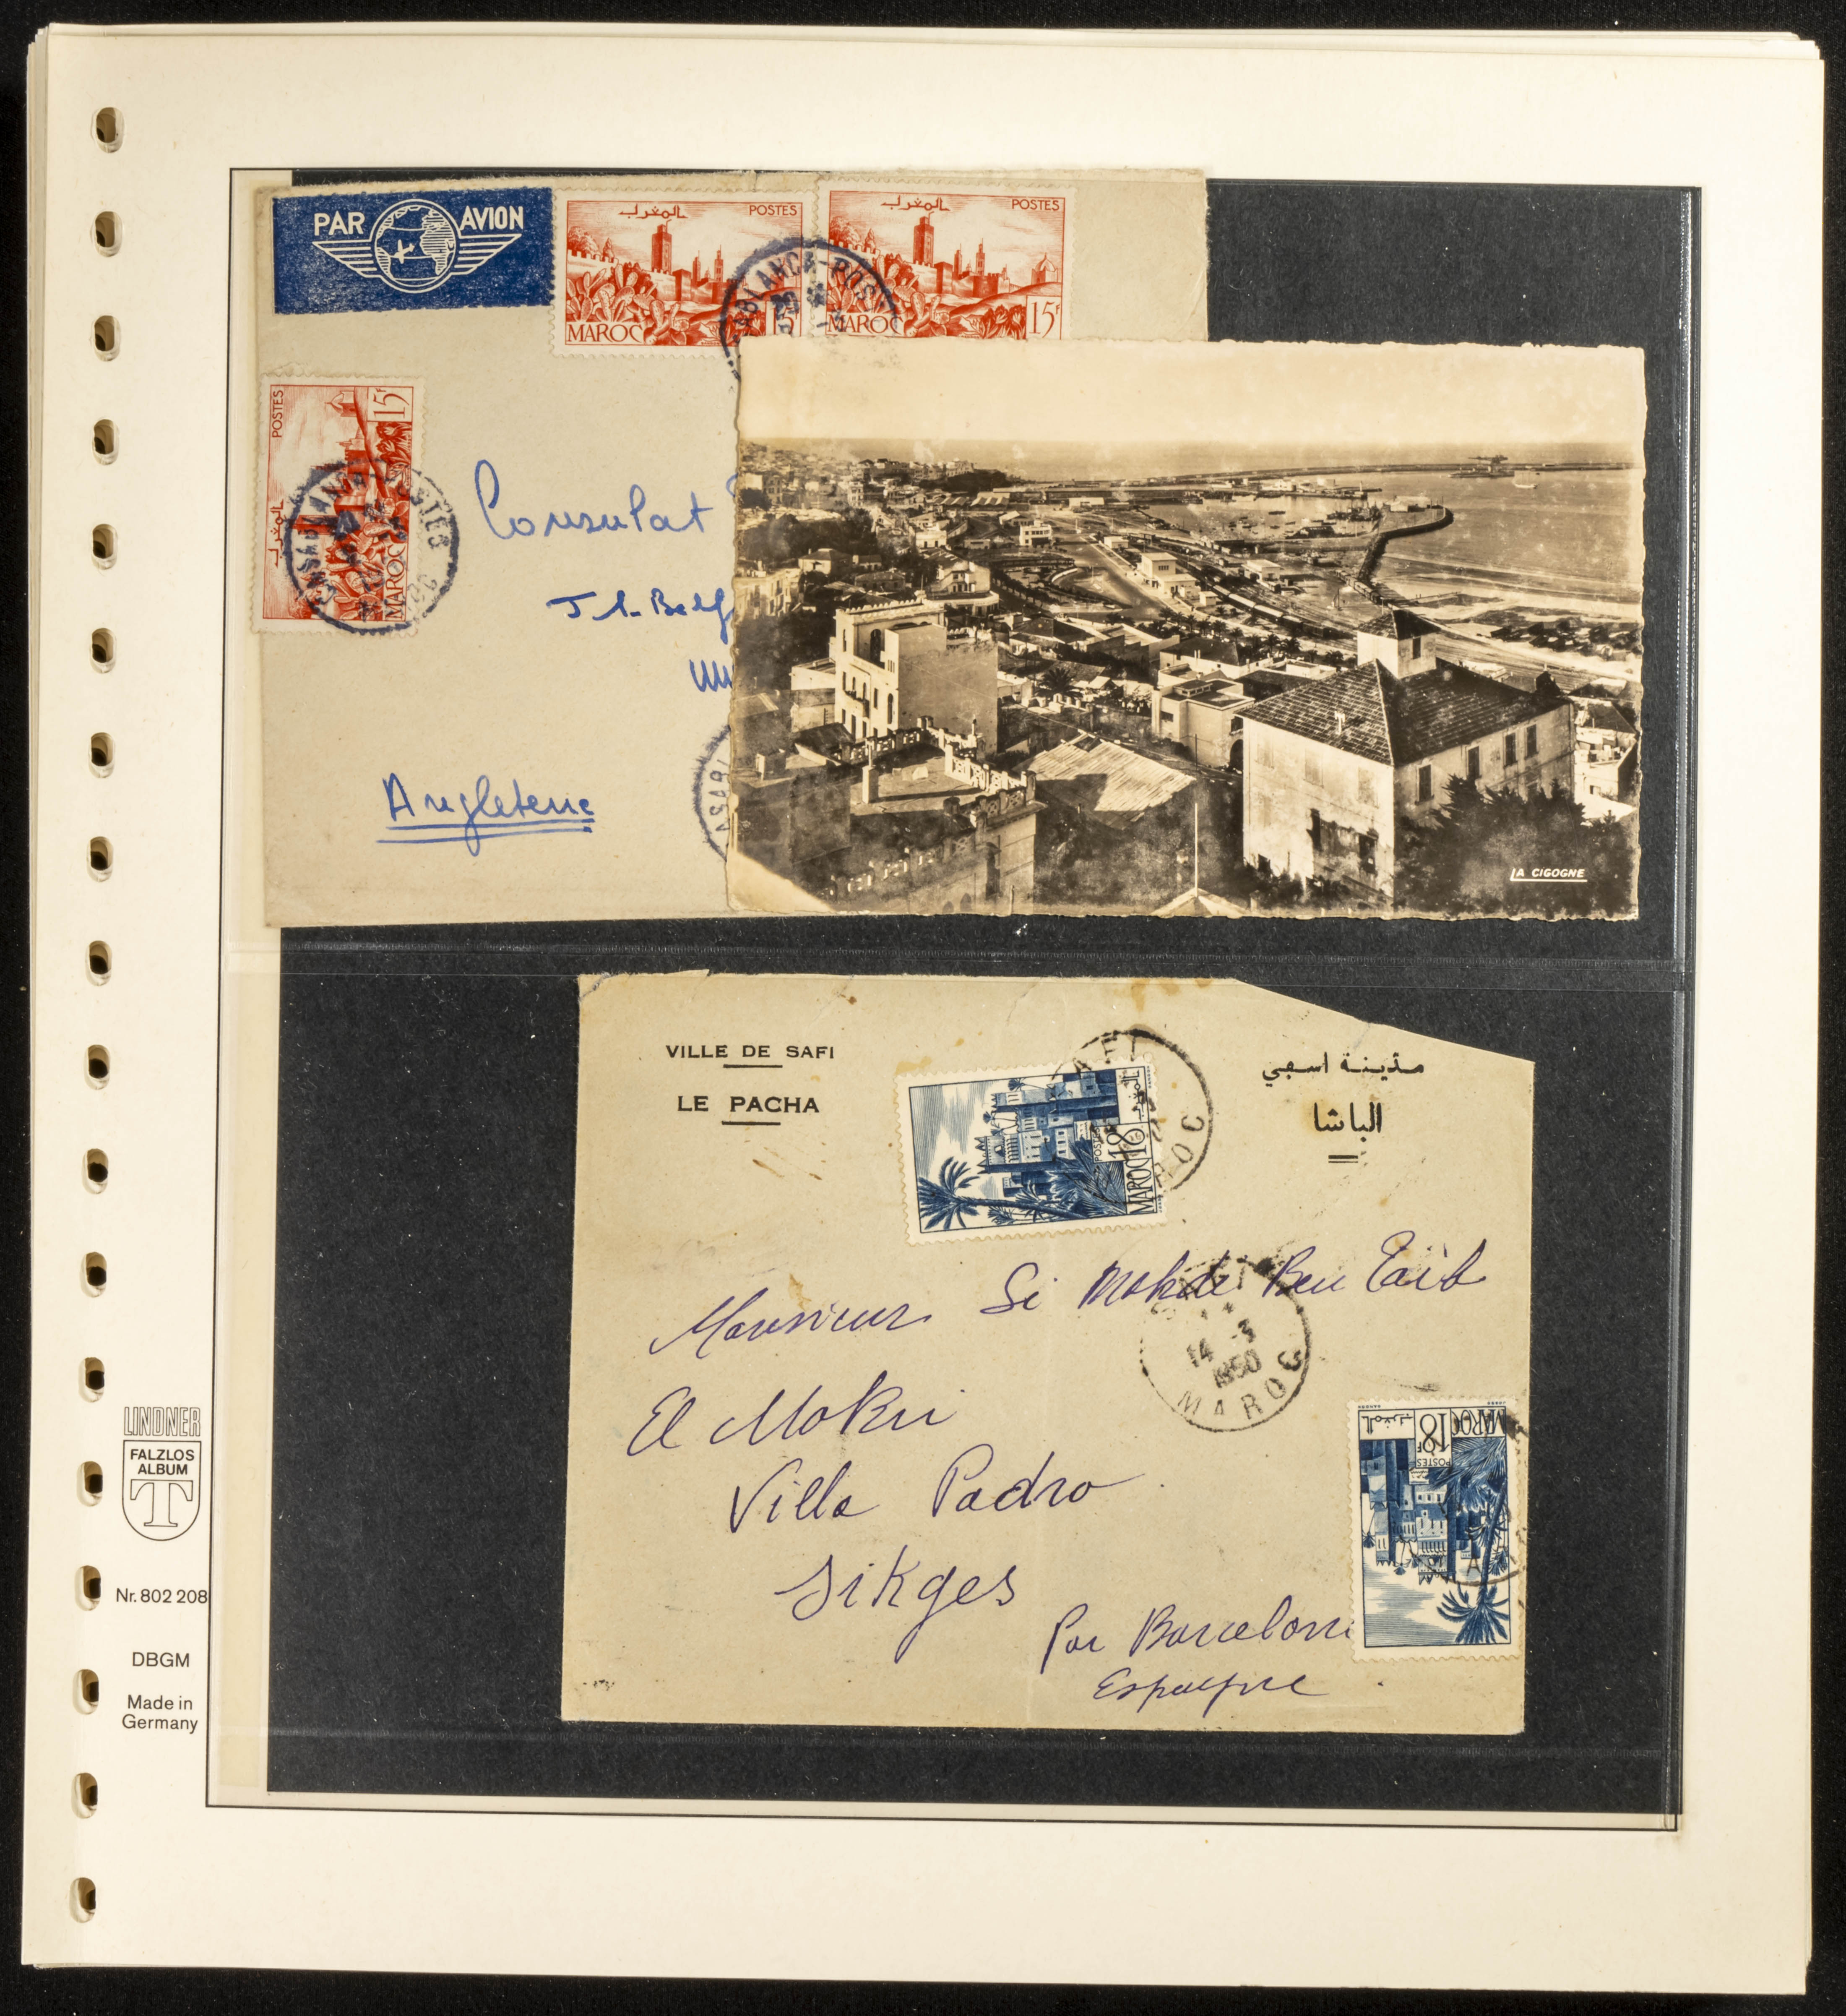 PAR AVION
المغرب POSTES
MAROC 15F
المغرب POSTES
MAROC 15F
POSTES 15F
المغرب MAROC
Consulat
Angleterre
LA CIGOGNE
VILLE DE SAFI
LE PACHA
مدينة اسفي
الباشا
المغرب
POSTES 18F
MAROC
Monsieur Si Mohde Ben Taïb
El Mokri
Villa Padro
Sikges
14 -3
1950
MAROC
Par Barcelone
Espagne
المغرب 18F MAROC
POSTES
LINDNER
FALZLOS
ALBUM
T
Nr. 802 208
DBGM
Made in
Germany